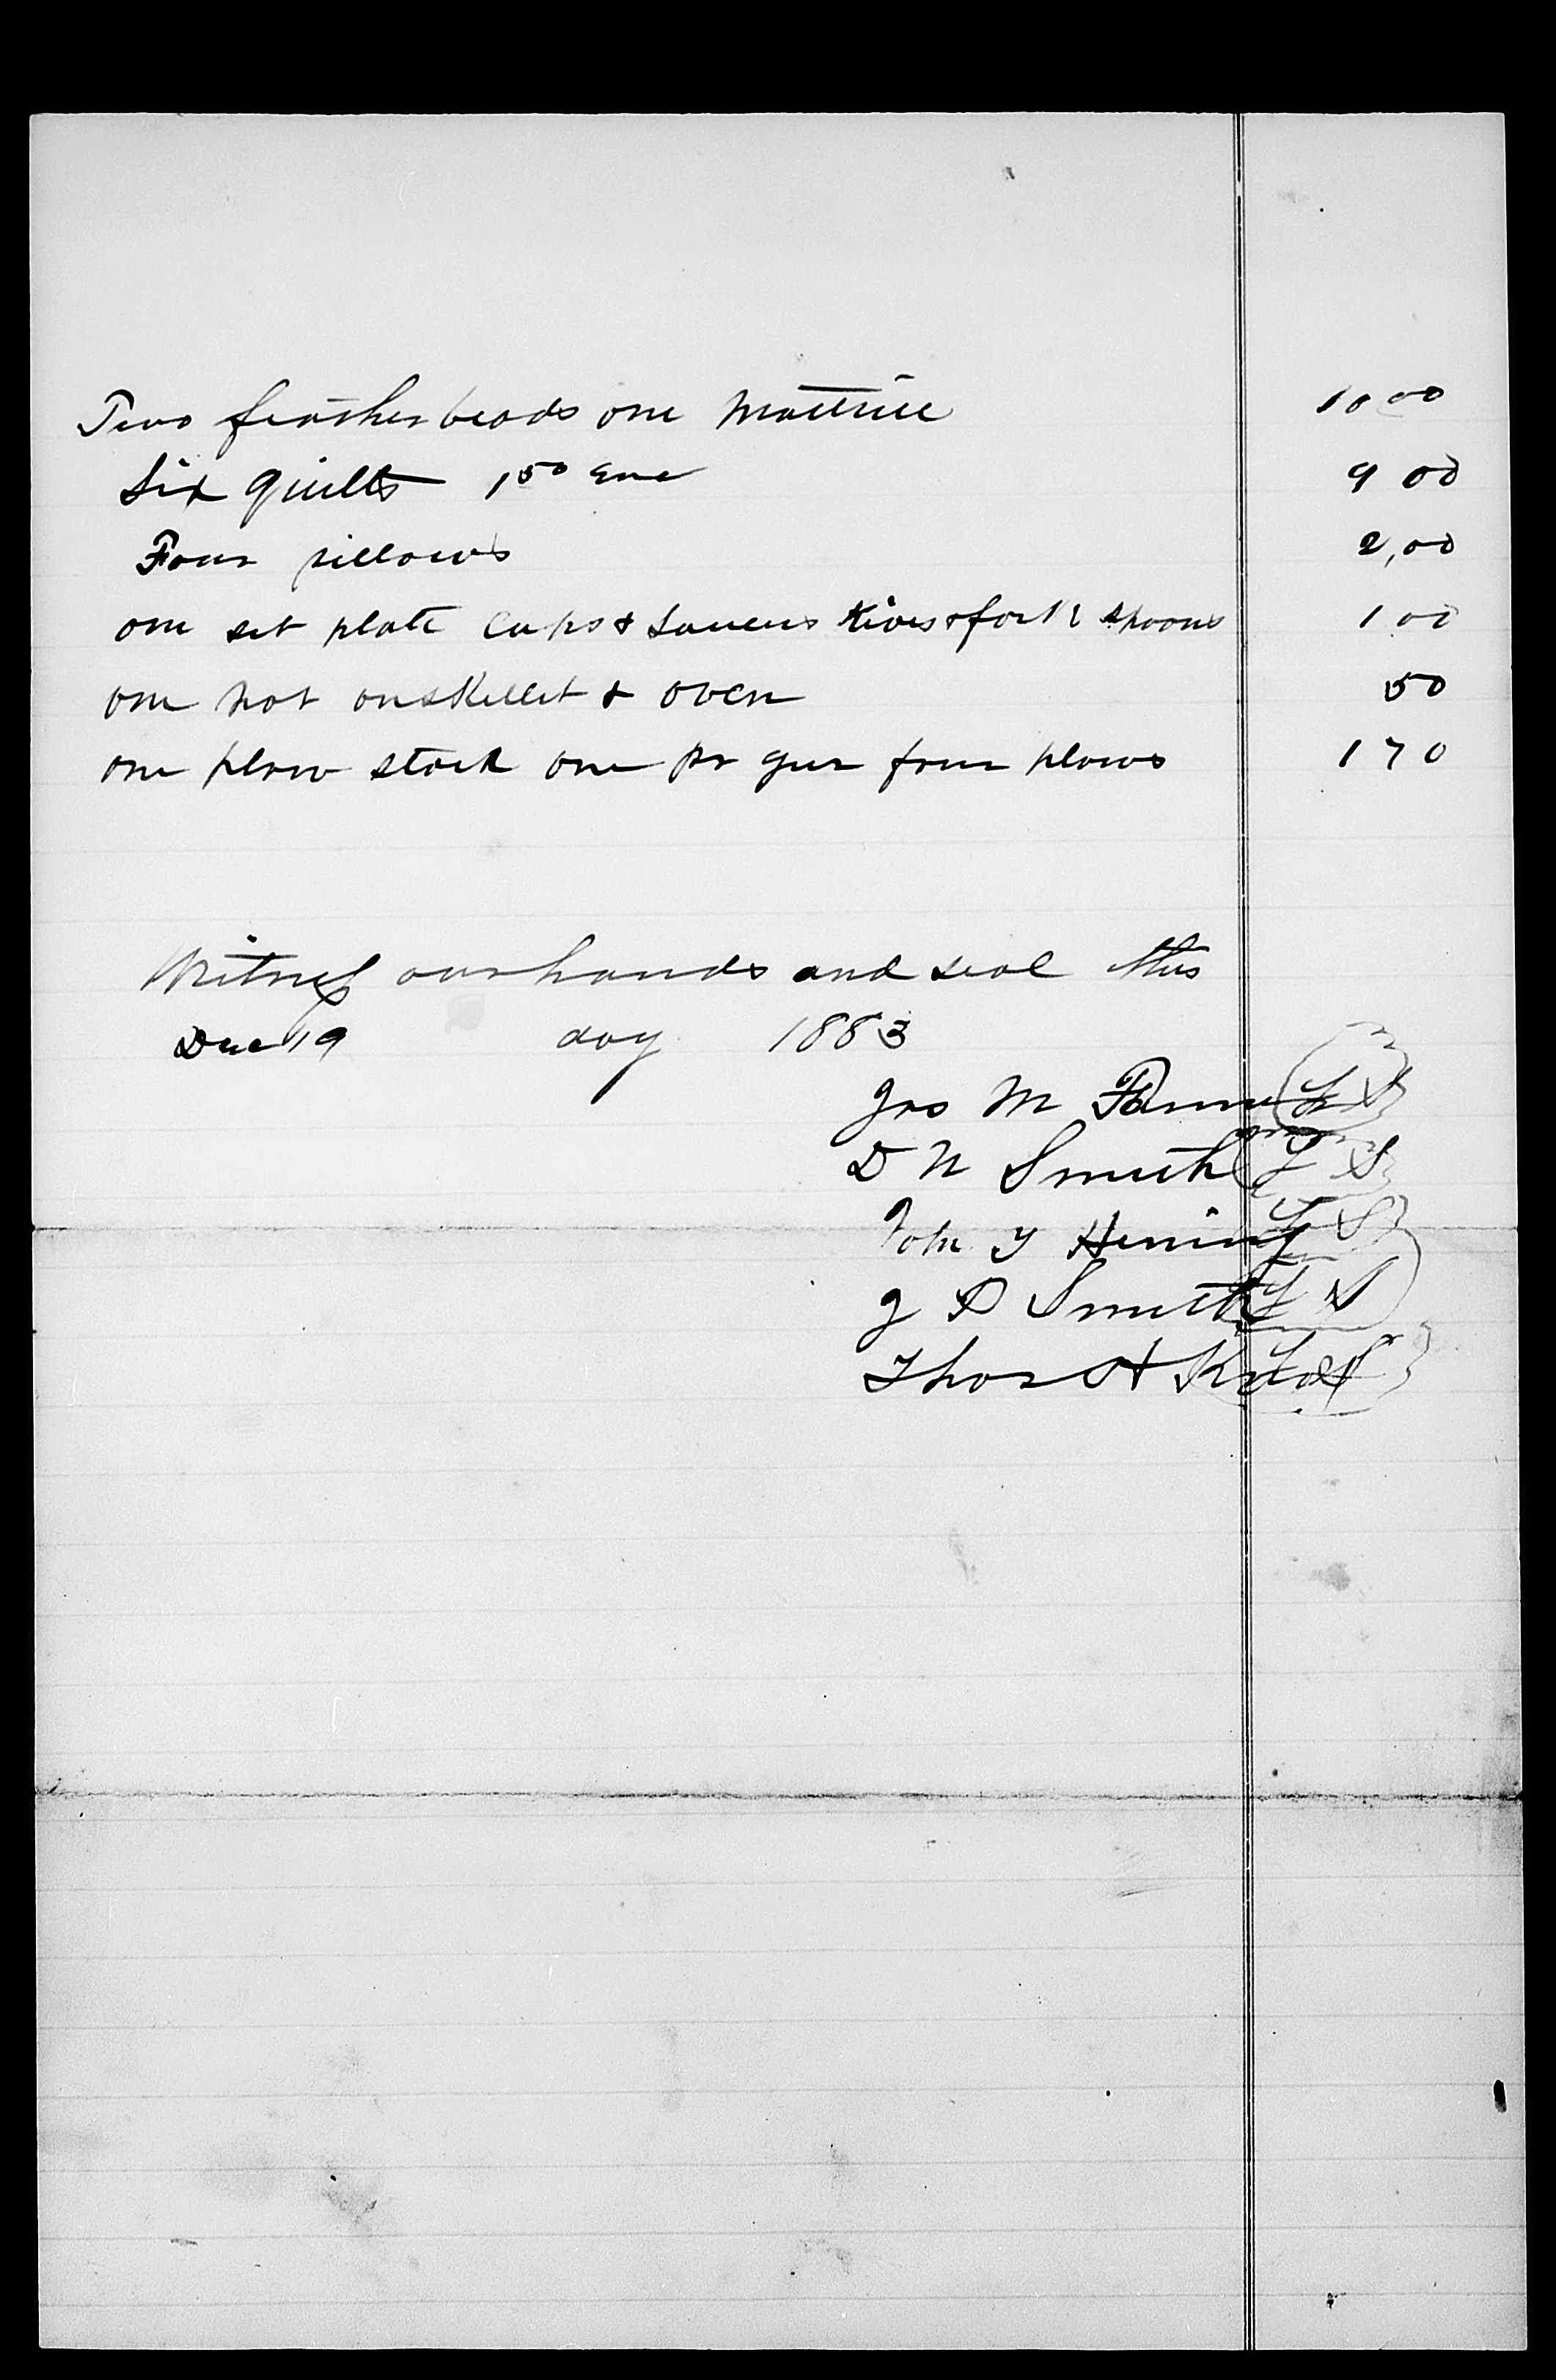 Two feather beads one Mattrice 10 00
Six quilts 1 50 Eac 9 00
Four pillows 2,00
one set plate cups & saucers Kives & fork spoons 1 00
one pot onskillet & oven 50
one plow stock one pr gear four plows 1 70
Witness our hands and seal this
Dec 19 day 1883
Jno M L S
D N Smith L S
John Y Hening L S
J D Smith L S
Thos H L S